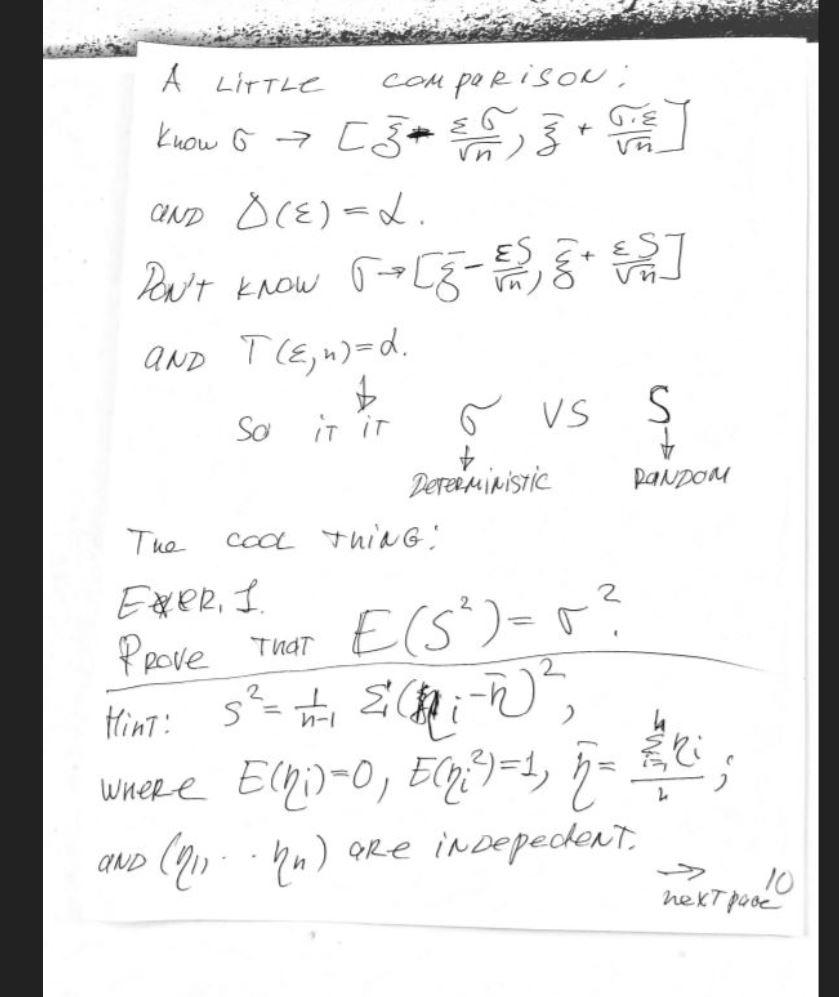 A LITTLE COMPARISON:
Know σ → [ξ̄ - εσ/√n, ξ̄ + σ·ε/√n]
AND Δ(ε) = α.
DON'T KNOW σ → [ξ̄ - εS/√n, ξ̄ + εS/√n]
AND T(ε, n) = α.
↓
SO IT IT σ VS S
↓ ↓
DETERMINISTIC RANDOM
The COOL THING:
EXER. 1.
PROVE THAT E(S²) = σ².
HINT: S² = 1/(n-1) Σ(ηi - η̄)²,
WHERE E(ηi)=0, E(ηi²)=1, η̄ = Σⁿᵢ₌₁ ηi / n ;
AND (η1, . . ηn) ARE INDEPEDENT.
→ 10
NEXT PAGE